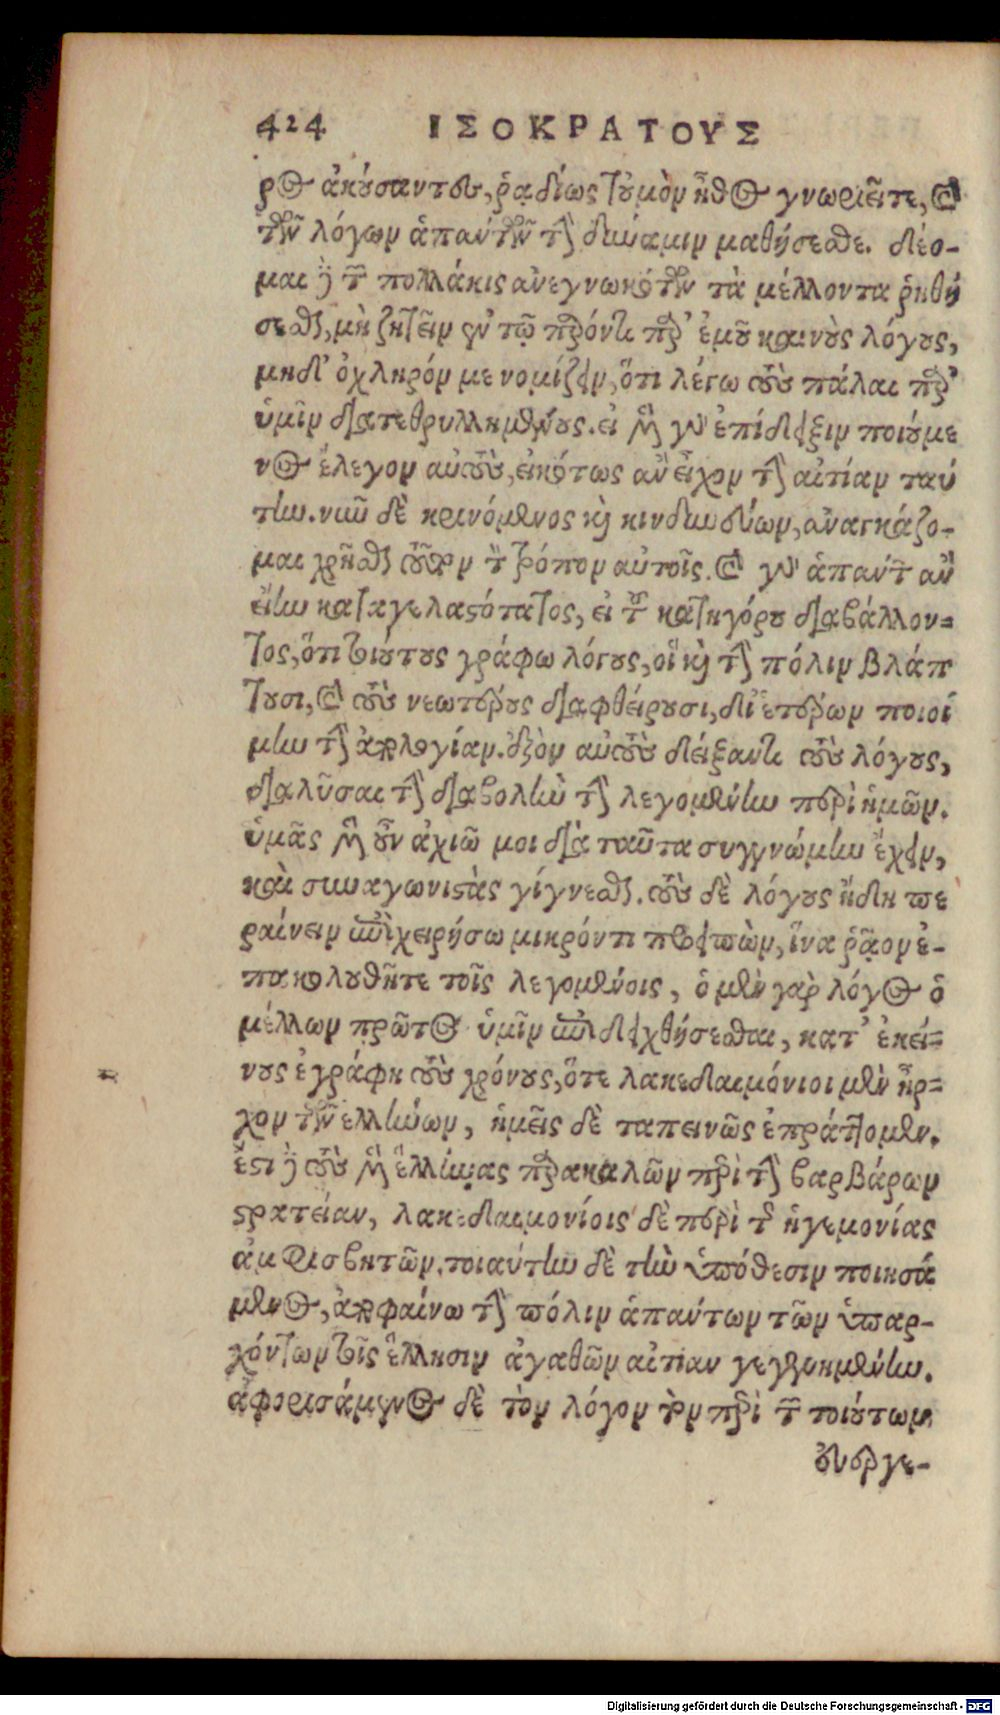 424 ΙΣΟΚΡΑΤΟΥΣ
ρος ἀκούσαντες, ῥᾳδίως τοὐμὸν ἦθος γνωριεῖτε, καὶ
τῶν λόγων ἁπάντων τὴν δύναμιν μαθήσεσθε. δέο-
μαι δὲ τῶν πολλάκις ἀνεγνωκότων τὰ μέλλοντα ῥηθή
σεσθαι, μὴ ζητεῖν ἐν τῷ παρόντι παρ' ἐμοῦ καινοὺς λόγους,
μηδ' ὀχληρόν με νομίζειν, ὅτι λέγω τοὺς πάλαι παρ'
ὑμῖν διατεθρυλλημένους. εἰ μὲν γὰρ ἐπίδειξιν ποιούμε
νος ἔλεγον αὐτοὺς, εἰκότως ἂν εἶχον τὴν αἰτίαν ταύ
την. νῦν δὲ κρινόμενος καὶ κινδυνεύων, ἀναγκάζο-
μαι χρῆσθαι τοῦτον τὸν τρόπον αὐτοῖς. καὶ γὰρ ἁπάντων ἂν
εἴην καταγελαστότατος, εἰ τοῦ κατηγόρου διαβάλλον-
τος, ὅτι τοιούτους γράφω λόγους, οἳ καὶ τὴν πόλιν βλάπ
τουσι, καὶ τοὺς νεωτέρους διαφθείρουσι, δι' ἑτέρων ποιοί
μην τὴν ἀπολογίαν. ἐξὸν αὐτοὺς δείξαντι τοὺς λόγους,
διαλῦσαι τὴν διαβολὴν τὴν λεγομένην περὶ ἡμῶν.
ὑμᾶς μὲν οὖν ἀξιῶ μοι διὰ ταῦτα συγγνώμην ἔχειν,
καὶ συναγωνιστὰς γίγνεσθαι. τοὺς δὲ λόγους ἤδη πε
ραίνειν ἐπιχειρήσω μικρόν τι προειπὼν, ἵνα ῥᾷον ἐ-
πακολουθῆτε τοῖς λεγομένοις, ὁ μὲν γὰρ λόγος ὁ
μέλλων πρῶτος ὑμῖν ἐπιδειχθήσεσθαι, κατ' ἐκεί-
νους ἐγράφη τοὺς χρόνους, ὅτε λακεδαιμόνιοι μὲν ἦρ-
χον τῶν ἑλλήνων, ἡμεῖς δὲ ταπεινῶς ἐπράττομεν.
ἔστι δὲ τοὺς μὲν ἕλληνας παρακαλῶν περὶ τὴν βαρβάρων
στρατείαν, λακεδαιμονίοις δὲ περὶ τῆς ἡγεμονίας
ἀμφισβητῶν. τοιαύτην δὲ τὴν ὑπόθεσιν ποιησά
μενος, ἀποφαίνω τὴν πόλιν ἁπάντων τῶν ὑπαρ-
χόντων τοῖς ἕλλησιν ἀγαθῶν αἰτίαν γεγενημένην.
ἀφορισάμενος δὲ τὸν λόγον τὸν περὶ τῶν τοιούτων
εὐεργε-
Digitalisierung gefördert durch die Deutsche Forschungsgemeinschaft - DFG